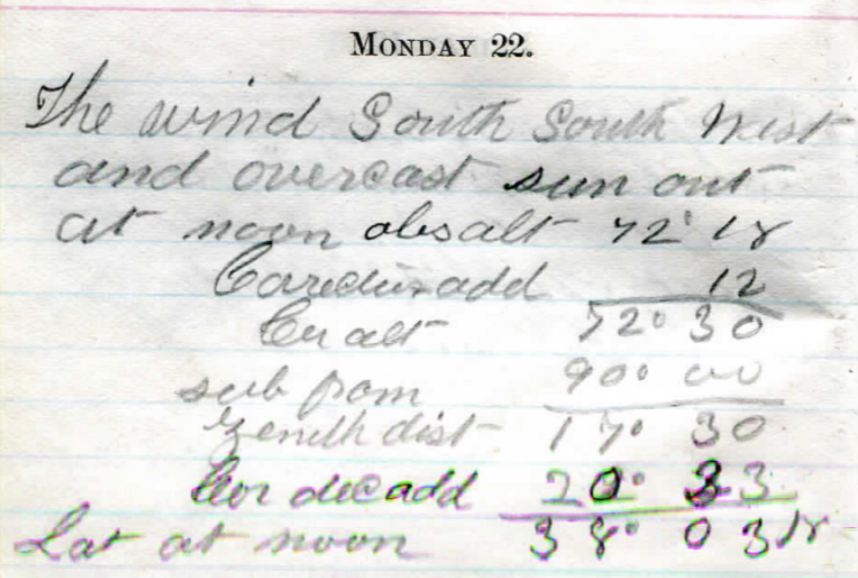 MONDAY 22.
The wind South South West
and overcast sun out
at noon obs alt 72° 18
add 12
Cor alt 72° 30
sub from 90° 00
Zenith dist 17° 30
Cor dec add 20° 33
Lat at noon 38° 03 N